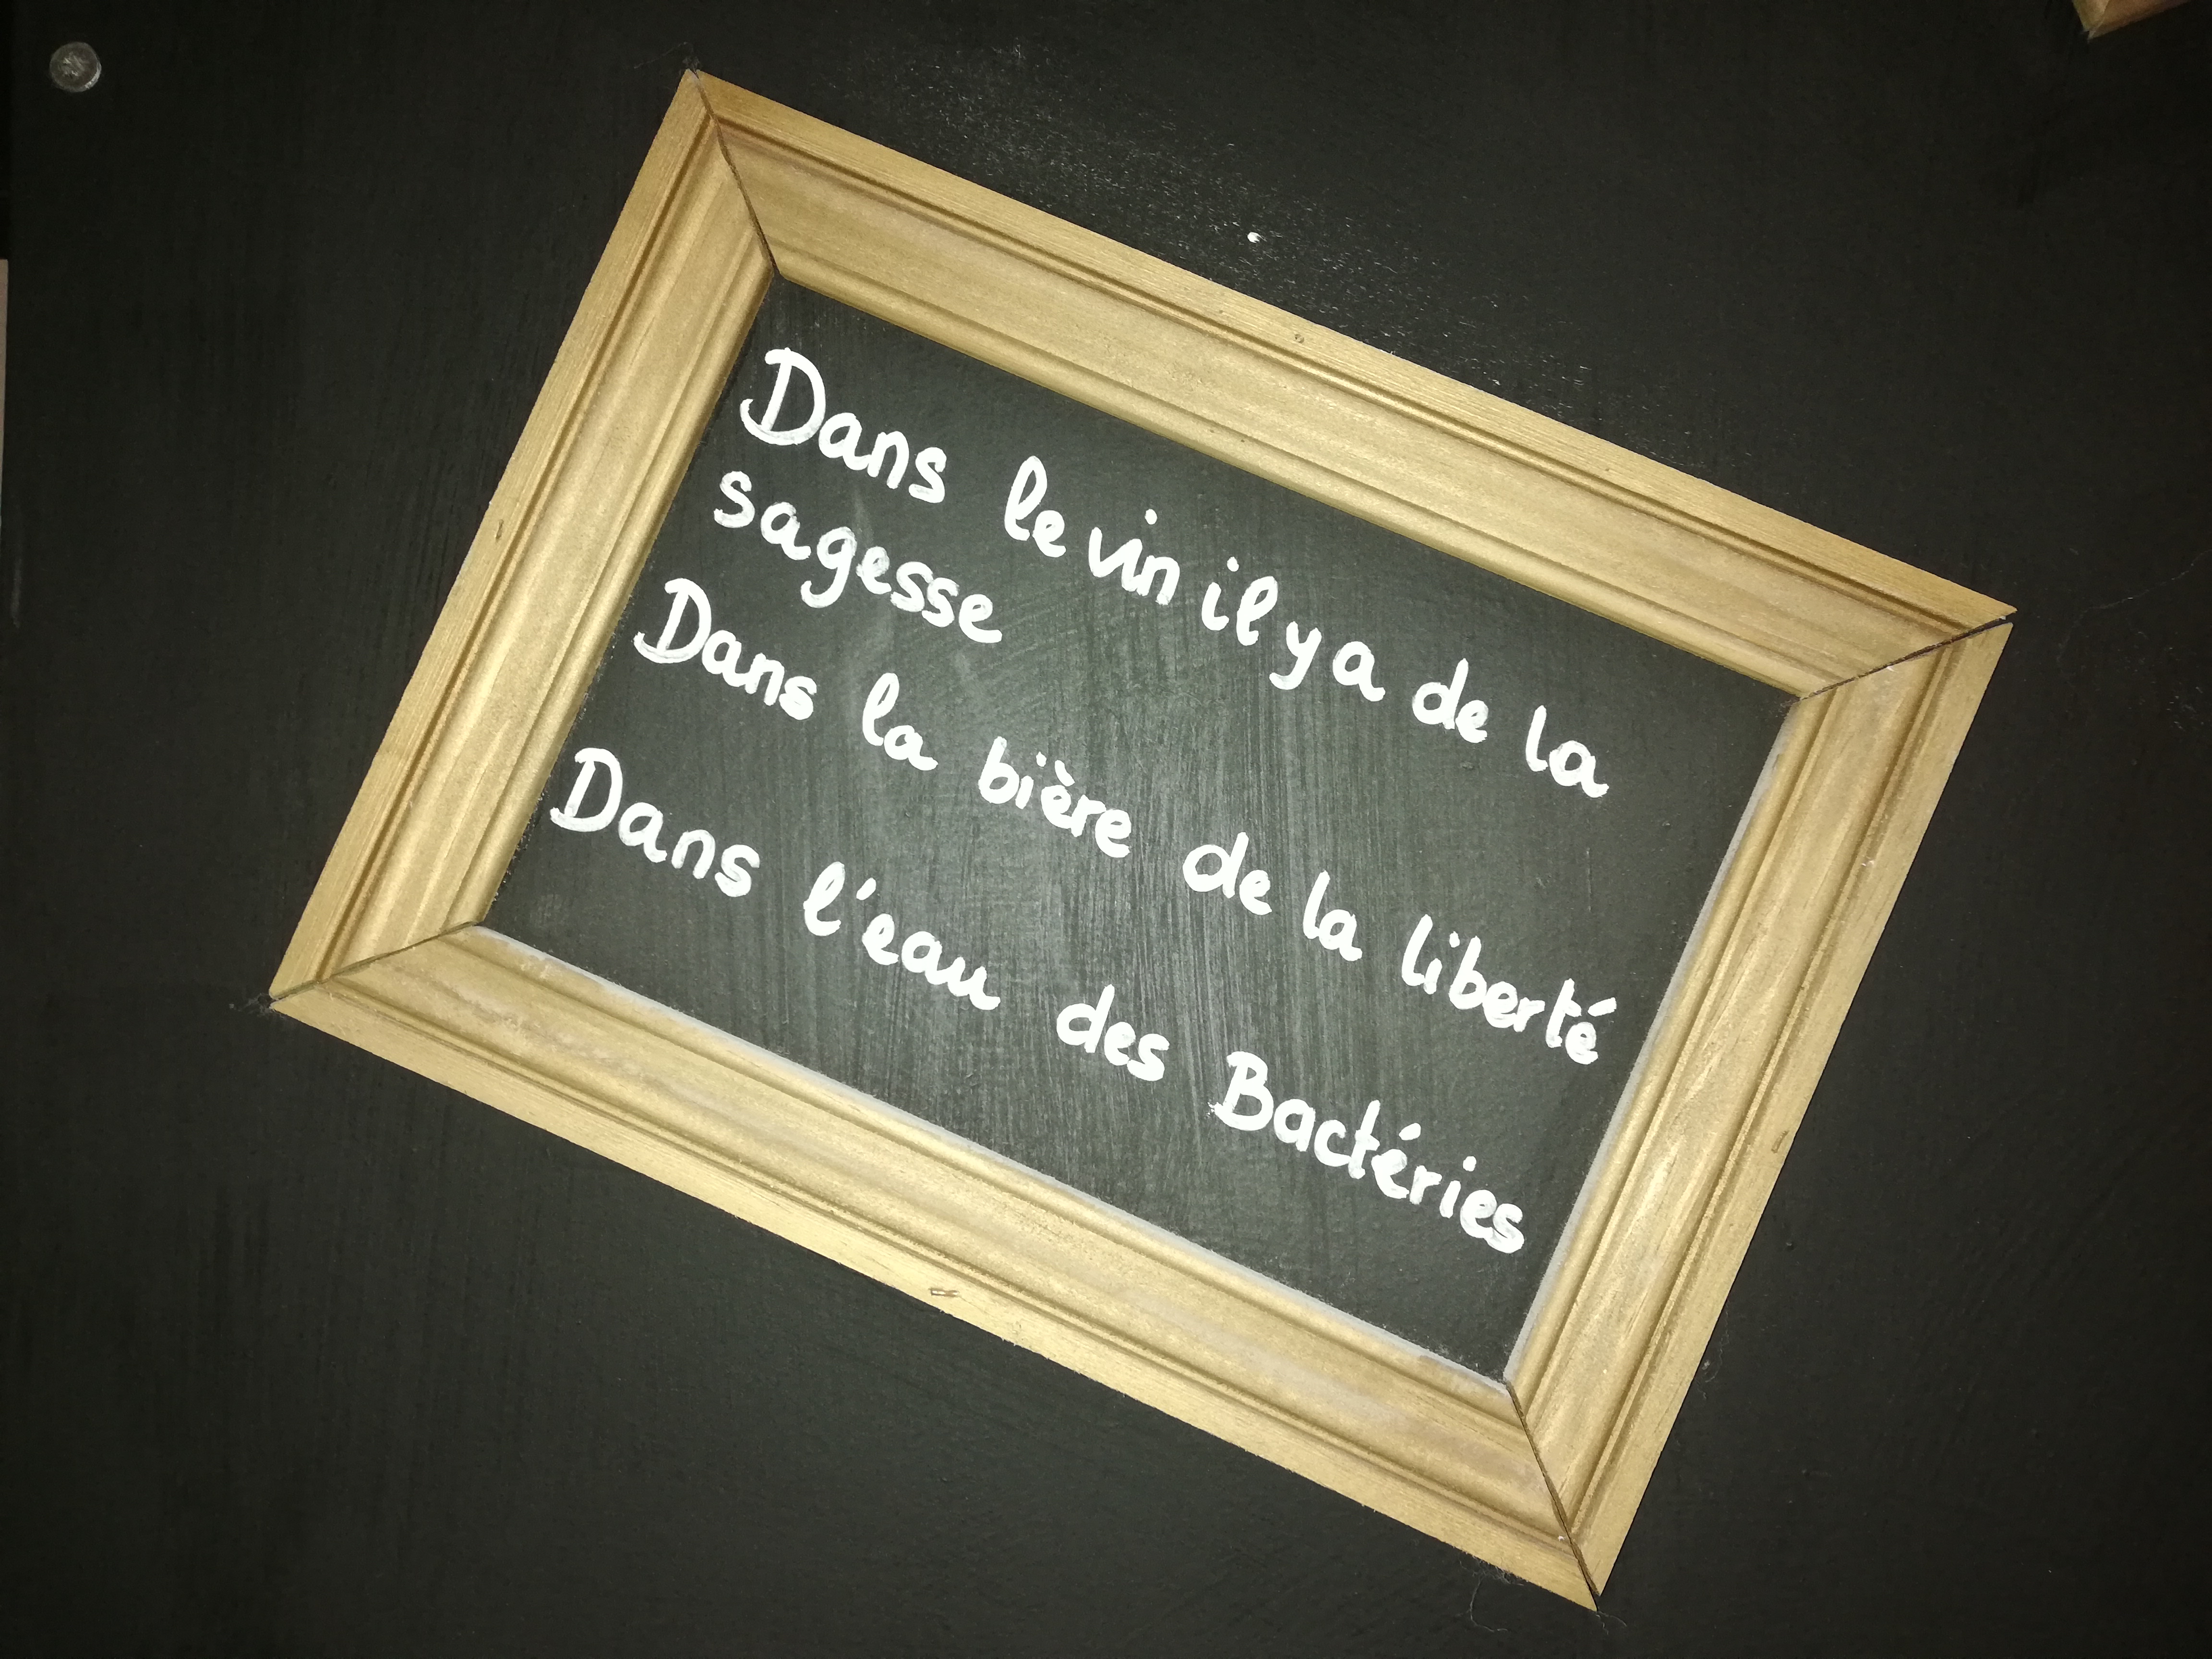 Dans le vin il y a de la
sagesse
Dans la bière de la liberté
Dans l'eau des Bactéries